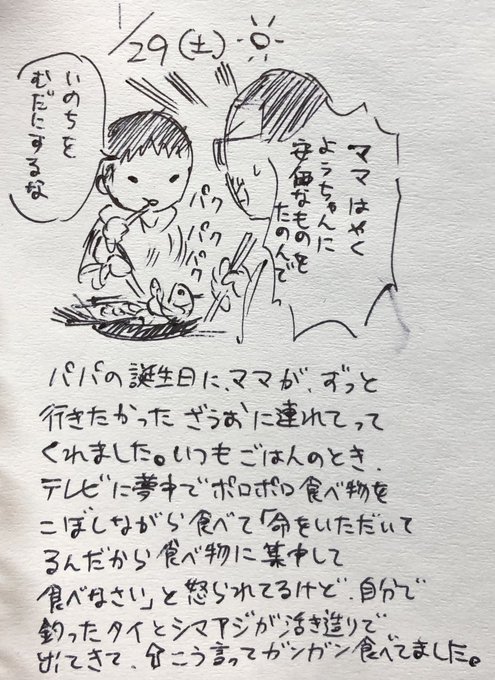 1/29(土)
ママはやく
ようちゃんに
安価なものを
たのんで
いのちを
むだにするな
パク
パク
パク
パパの誕生日に、ママが、ずっと
行きたかった ざうおに連れてって
くれました。いつもごはんのとき、
テレビに夢中でポロポロ食べ物を
こぼしながら食べて「命をいただいて
るんだから食べ物に集中して
食べなさい」と怒られてるけど、自分で
釣ったタイとシマアジが活き造りで
出てきて、こう言ってガンガン食べてました。